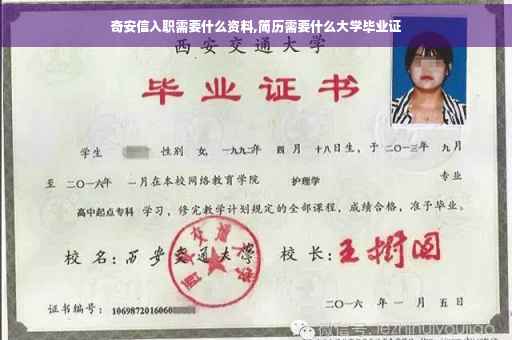 奇安信入职需要什么资料,简历需要什么大学毕业证
西安交通大学
毕业证书
学生 性别 女, 一九九二年 四月 十八日生, 于 二〇一三年 九月
至 二〇一六年 一月在本校网络教育学院 护理学 专业
高中起点专科 学习, 修完教学计划规定的全部课程, 成绩合格, 准予毕业。
校 名: 西安交通大学 校 长: 王树国
证书编号: 1069872016060
二〇一六 年 一 月 五 日
微信号: jezhihuiyoujiao